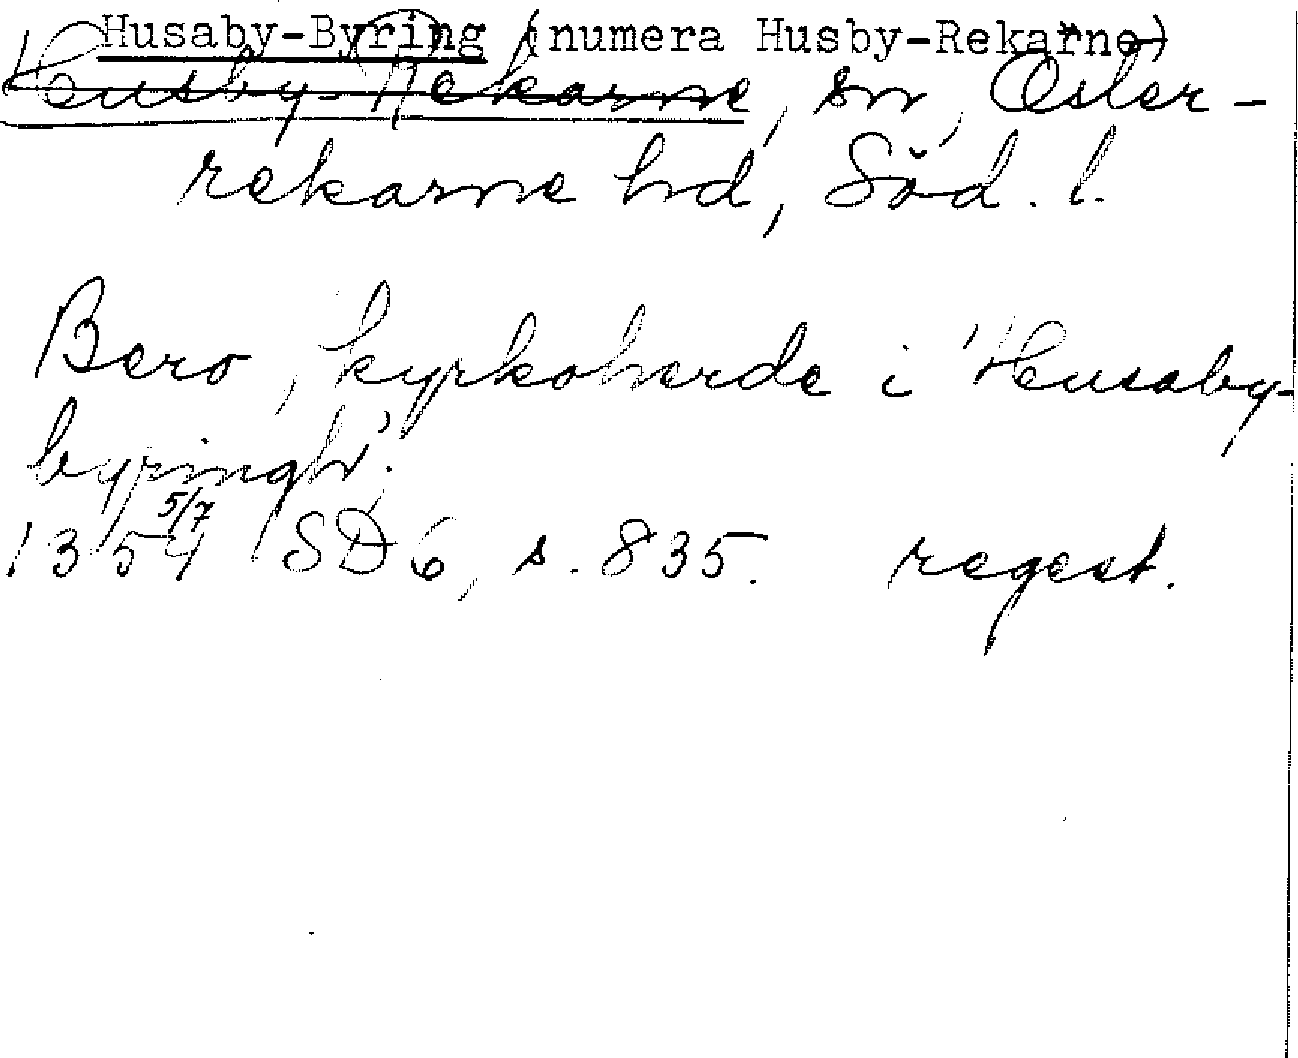 Husaby-Byring (numera Husby-Rekarne)
Husby-Rekarne, sn, Öster-
rekarne hd, Söd. l.
Bero, kyrkoherde i 'Husaby-
byringh'.
1354 5/7 SD 6, s. 835. regest.